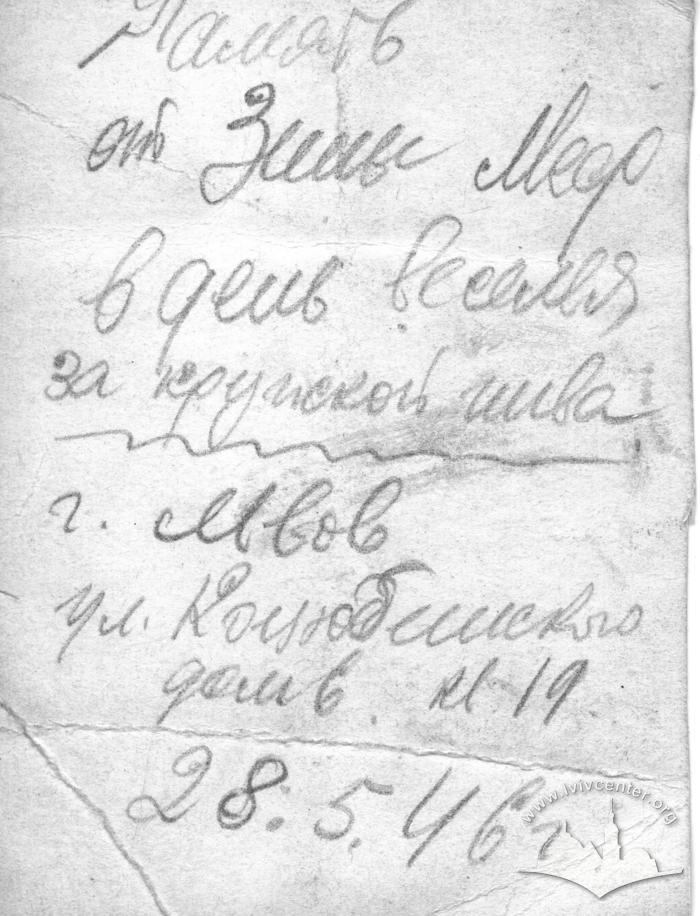 Память
от Зины Медо
в день веселья
за кружкой пива
г. Львов
ул. Коцюбинского
дом 6. кв 19
28.5.46 г
www.lvivcenter.org